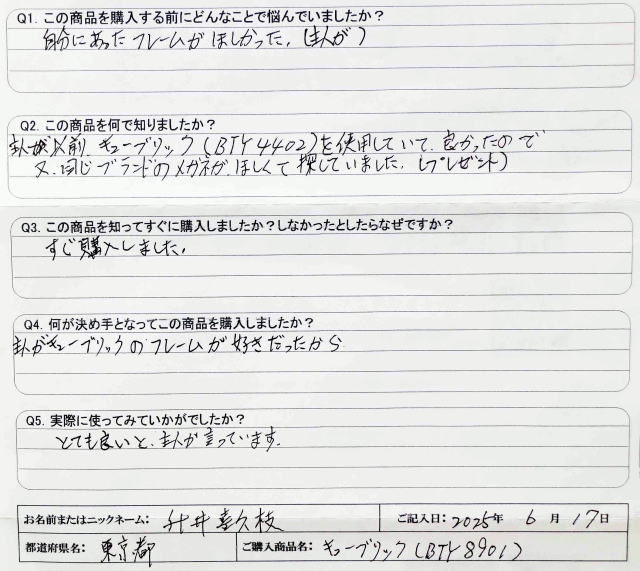 Q1. この商品を購入する前にどんなことで悩んでいましたか？
自分にあったフレームがほしかった。（主人が）
Q2. この商品を何で知りましたか？
主人が以前、キューブリック（BTY4402）を使用していて、良かったので
又、同じブランドのメガネがほしくて探していました。（プレゼント）
Q3. この商品を知ってすぐに購入しましたか？しなかったとしたらなぜですか？
すぐ購入しました。
Q4. 何が決め手となってこの商品を購入しましたか？
主人がキューブリックのフレームが好きだったから
Q5. 実際に使ってみていかがでしたか？
とても良いと、主人が言っています。
お名前またはニックネーム： 升井喜久枝 ご記入日：2025年 6月 17日
都道府県名： 東京都 ご購入商品名：キューブリック（BTY8901）